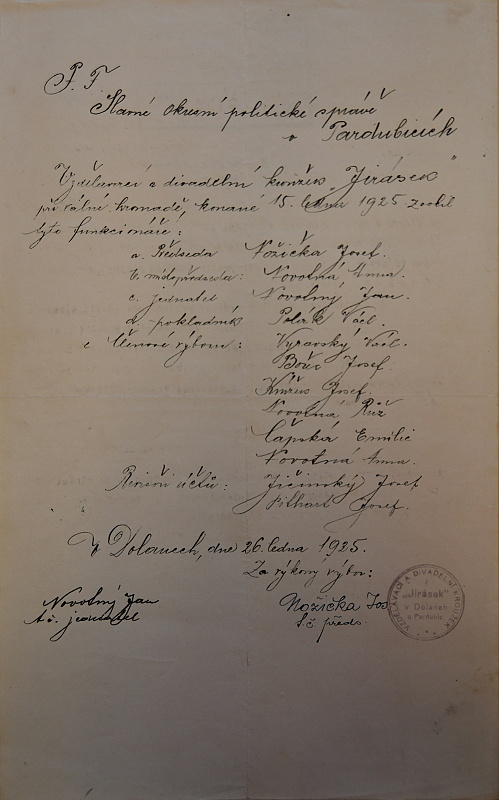 P. T
Slavné okresní politické správě
v Pardubicích
Vzdělavací a divadelní kroužek "Jirásek"
při valné hromadě konané 15. ledna 1925 zvolil
tyto funkcionáře:
a. Předseda Nožička Josef.
b. místopředseda: Novotná Anna.
c. jednatel Novotný Jan.
d. pokladník Václ.
e Členové výboru: Vyravský Václ.
Josef.
Josef.
Novotná Růž
Čapská Emilie
Novotná Anna.
Revisoři účtů: Jičinský Josef
Pilhart Josef.
V Dolanech, dne 26. ledna 1925.
Za výkoný výbor:
Novotný Jan
t. č. jednatel
Nožička Jos
t. č. předs.
VZDĚLAVACÍ A DIVADELNÍ KROUŽEK
"Jirásek"
v Dolanech
u Pardubic